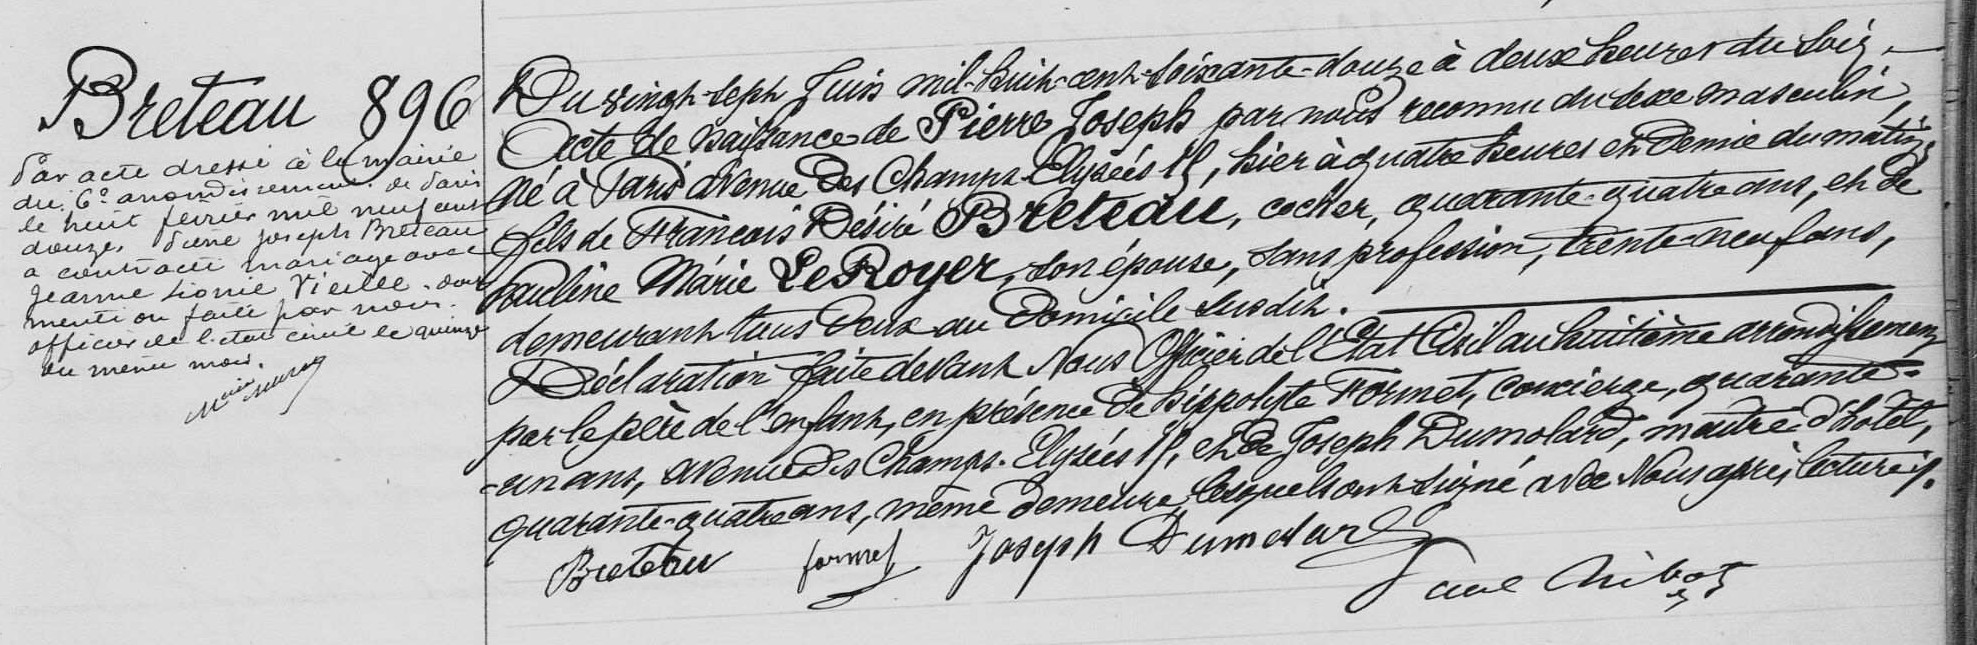 Breteau 896
Par acte dressé à la mairie
du 6e arrondissement de Paris
le huit février mil neuf cent
douze, Pierre Joseph Breteau
a contracté mariage avec
Jeanne Léonie Vieille. dont
mention faite par nous.
officier de l'état civil le quinze
du même mois.
Du vingt-sept Juin mil-huit-cent-soixante-douze à deux heures du soir.
Acte de Naissance de Pierre Joseph par nous reconnu du sexe masculin,
né à Paris avenue des Champs-Elysées, hier à quatre heures et demie du matin,
fils de François Désiré Breteau, cocher, quarante-quatre ans, et de
Pauline Marie LeRoyer, son épouse, sans profession, trente-neuf ans,
demeurant tous deux au domicile susdit.
Déclaration faite devant Nous Officier de l'Etat Civil au huitième arrondissement
par le père de l'enfant, en présence de Hippolyte Formet, concierge, quarante-
-un ans, avenue des Champs-Elysées, et de Joseph Dumolard, maître d'hôtel,
quarante-quatre ans, même demeure, lesquels ont signé avec Nous après lecture.
Breteau formet Joseph Dumolard
Paul